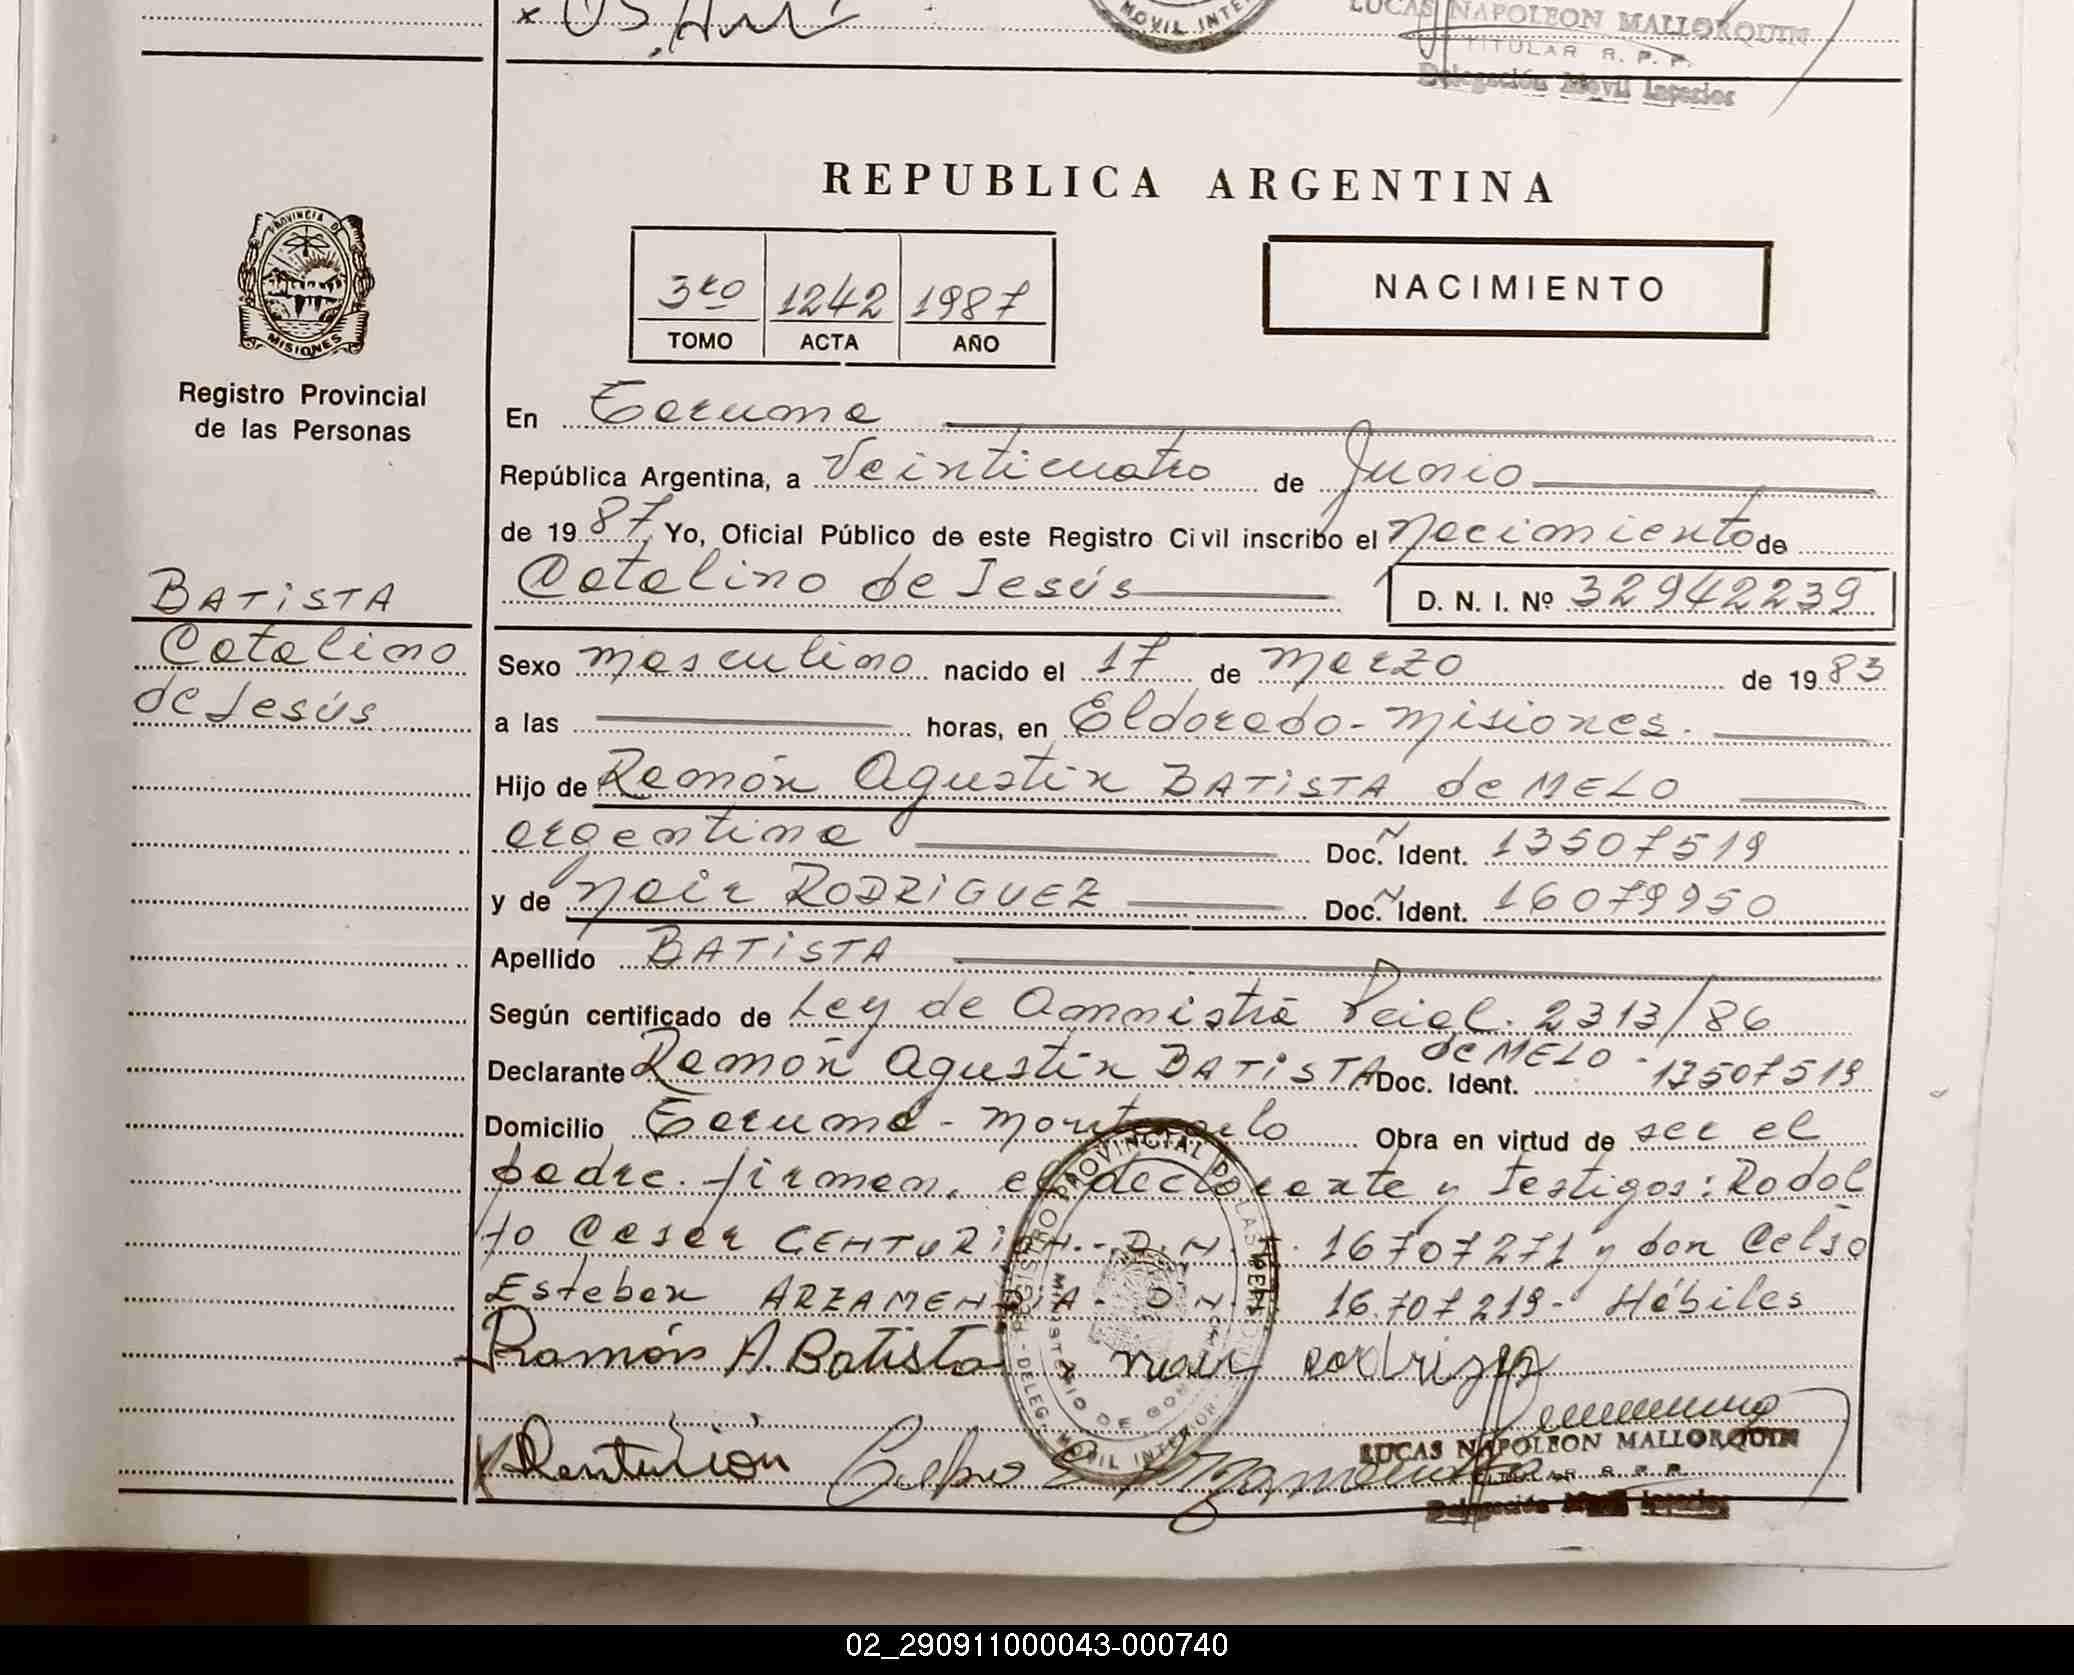 MOVIL INTER
LUCAS NAPOLEON MALLORQUIN
TITULAR R. P. P.
Delegación Movil Interior
PROVINCIA DE
MISIONES
Registro Provincial
de las Personas
BATISTA
Catalino
de Jesús
REPUBLICA ARGENTINA
3ro 1242 1987
TOMO ACTA AÑO
NACIMIENTO
En Taruma
República Argentina, a Veinticuatro de Junio
de 1987, Yo, Oficial Público de este Registro Civil inscribo el Nacimiento de
Catalino de Jesús D. N. I. Nº 32942239
Sexo masculino nacido el 17 de Marzo de 1983
a las horas, en Eldorado - Misiones.
Hijo de Ramón Agustin BATISTA de MELO
argentina Doc. Ident. 13507519
y de Nair RODRIGUEZ Doc. Ident. 16079950
Apellido BATISTA
Según certificado de Ley de Amnistia 2313/86
de MELO -
Declarante Ramón Agustin BATISTA Doc. Ident. 13507519
Domicilio Taruma - Obra en virtud de ser el
padre. firman, el declarante y testigos: Rodol
fo Cesar CENTURION.- D.N.I. 16707271 y don Celso
Esteban ARZAMENDIA - D.N.I. 16.707219- Hábiles
Ramón A. Batista nair rodriguez
Centurion Celso E Arzamendia
REGISTRO PROVINCIAL DE LAS PERSONAS
MINISTERIO DE GOB
DELEG. MOVIL INTERIOR
LUCAS NAPOLEON MALLORQUIN
TITULAR R. P. P.
Delegación Movil Interior
02_290911000043-000740